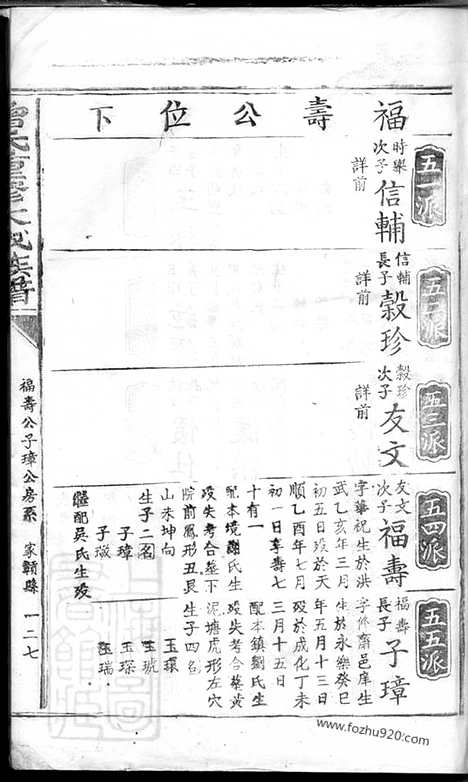 福壽公位下
五一派
時舉
次子
信輔
詳前
五二派
信輔
長子
穀珍
詳前
五三派
穀珍
次子
友文
詳前
五四派
友文
次子
福壽
字華祝生於洪
武乙亥年三月
初五日歿於天
順乙酉年七月
初一日享壽七
十有一
配本境謝氏生
歿失考合葬下
院前鳳形丑艮
山未坤向
生子二名
子璋
子璥
繼配吳氏生歿
五五派
福壽
長子
子璋
字修齋邑庠生
生於永樂癸巳
年五月十三日
歿於成化丁未
三月十五日
配本鎮劉氏生
歿失考合葬黃
泥塘虎形左穴
生子四名
玉環
玉琥
玉琛
玉瑞
重修大成族譜
福壽公子璋公房系
一二七
www.fozhu920.com